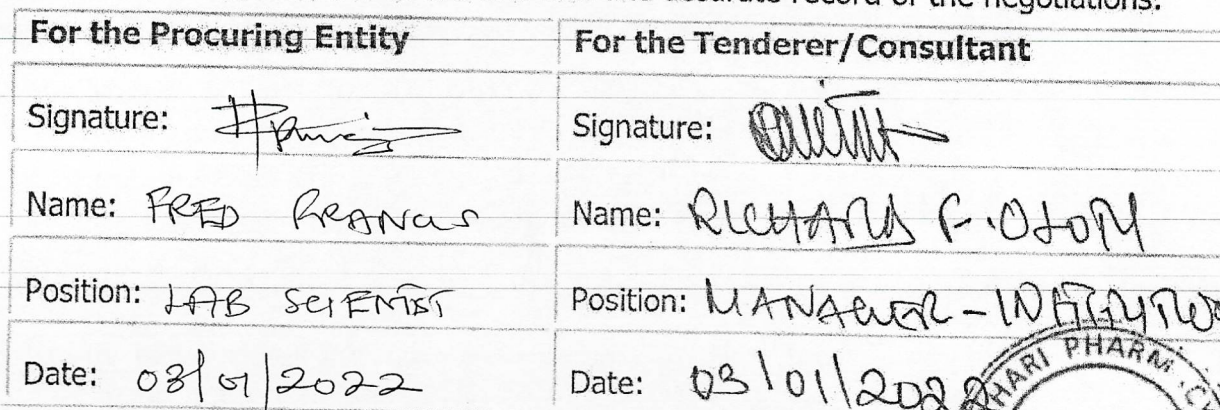 accurate record of the negotiations.
For the Procuring Entity
For the Tenderer/Consultant
Signature:
Signature:
Name: FRED FRANCIS
Name: RICHARD F.
Position: LAB SCIENTIST
Position: MANAGER -
Date: 03/01/2022
Date: 03/01/2022
HARI PHARM